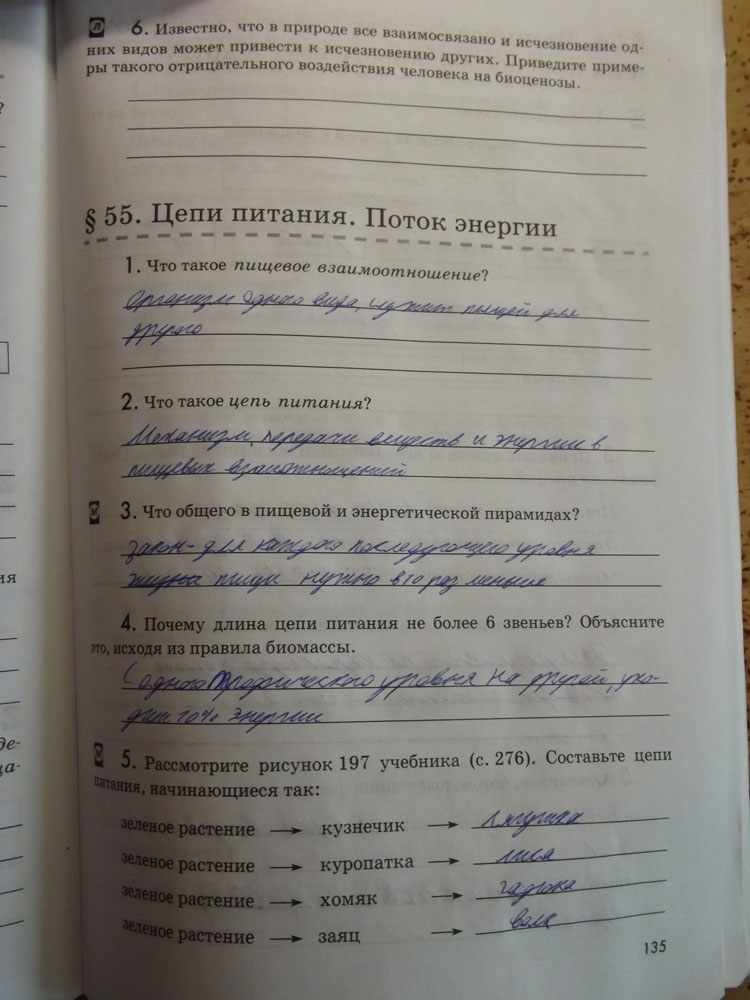 л 6. Известно, что в природе все взаимосвязано и исчезновение од-
них видов может привести к исчезновению других. Приведите приме-
ры такого отрицательного воздействия человека на биоценозы.
§ 55. Цепи питания. Поток энергии
1. Что такое пищевое взаимоотношение?
Организм одного вида, служит пищей для
другого
2. Что такое цепь питания?
Механизм, передачи веществ и энергии в
пищевых взаимотношений
м 3. Что общего в пищевой и энергетической пирамидах?
закон- для каждого последующего уровня
пищи нужно в 10 раз меньше
4. Почему длина цепи питания не более 6 звеньев? Объясните
это, исходя из правила биомассы.
С одного трофического уровня на другой, ухо-
дит 10% энергии
м 5. Рассмотрите рисунок 197 учебника (с. 276). Составьте цепи
питания, начинающиеся так:
зеленое растение → кузнечик → лягушка
зеленое растение → куропатка → лиса
зеленое растение → хомяк → гадюка
зеленое растение → заяц → волк
135
?
ия
де-
ца-